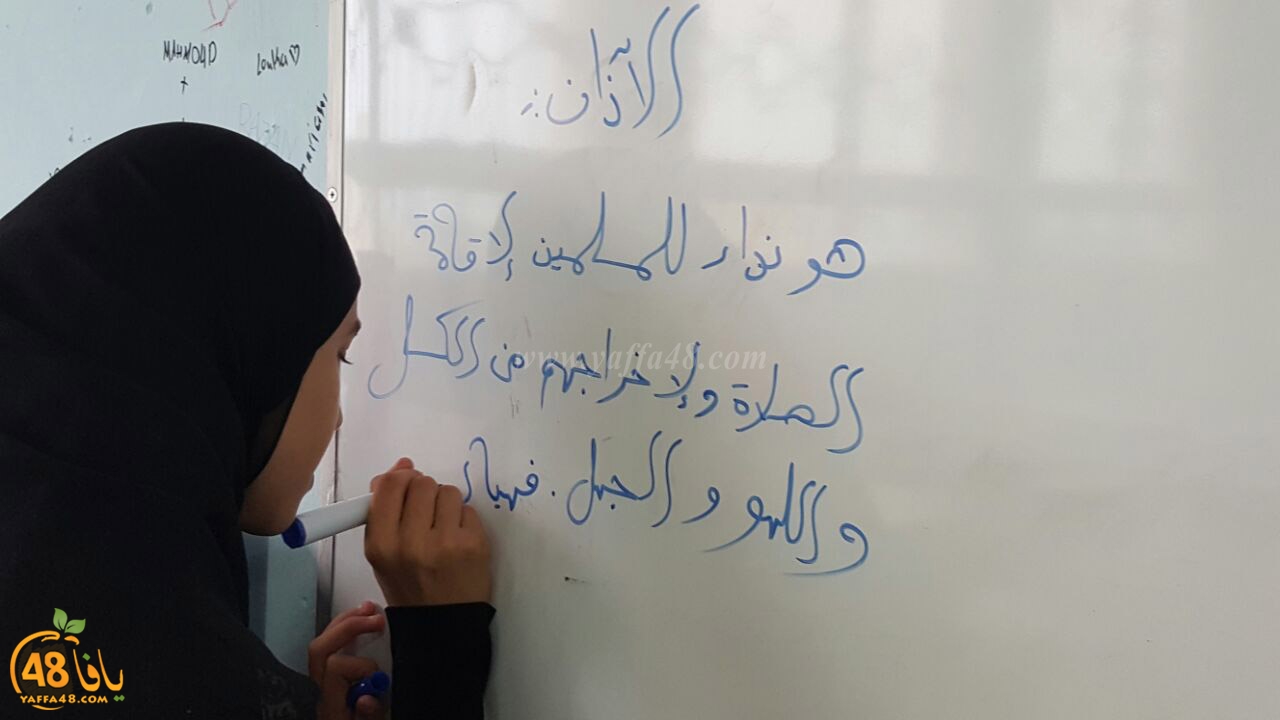 MAHMOUD
Louka♡
الآذان:
هو نداء للمسلمين لإقامة
الصلاة ولإخراجهم من الكسل
واللهو والجهل. فهيا
www.yaffa48.com
48 يافا
YAFFA48.COM